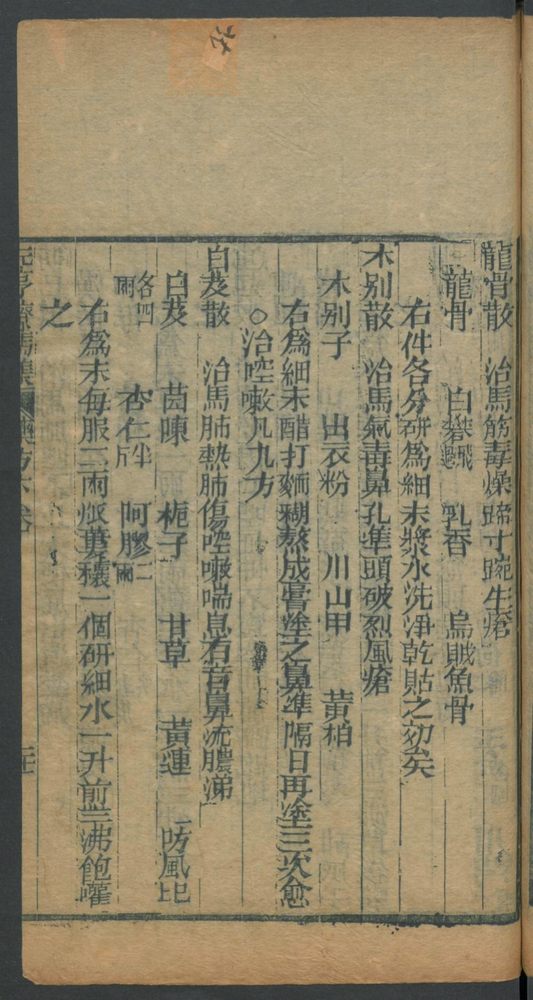 龍骨散　治馬筋毒燥蹄寸踠生瘡
龍骨　白礬飛過　乳香　烏賊魚骨
右件各分研爲細末漿水洗淨乾貼之効矣
木別散　治馬氣毒鼻孔準頭破烈風瘡
木別子　出衣粉　川山甲　黃栢
右爲細末醋打麵糊熬成膏塗之鼻準隔日再塗三次愈
○治啌嗽凡九方
白芨散　治馬肺熱肺傷啌嗽喘息有音鼻流膿涕
白芨　茵陳　梔子　甘草　黃連　防風巳
各四兩　杏仁半斤　阿膠二兩
右爲末每服二兩瓜蔞穰一個研細水一升前三沸飽嚾
之
元亨療馬集